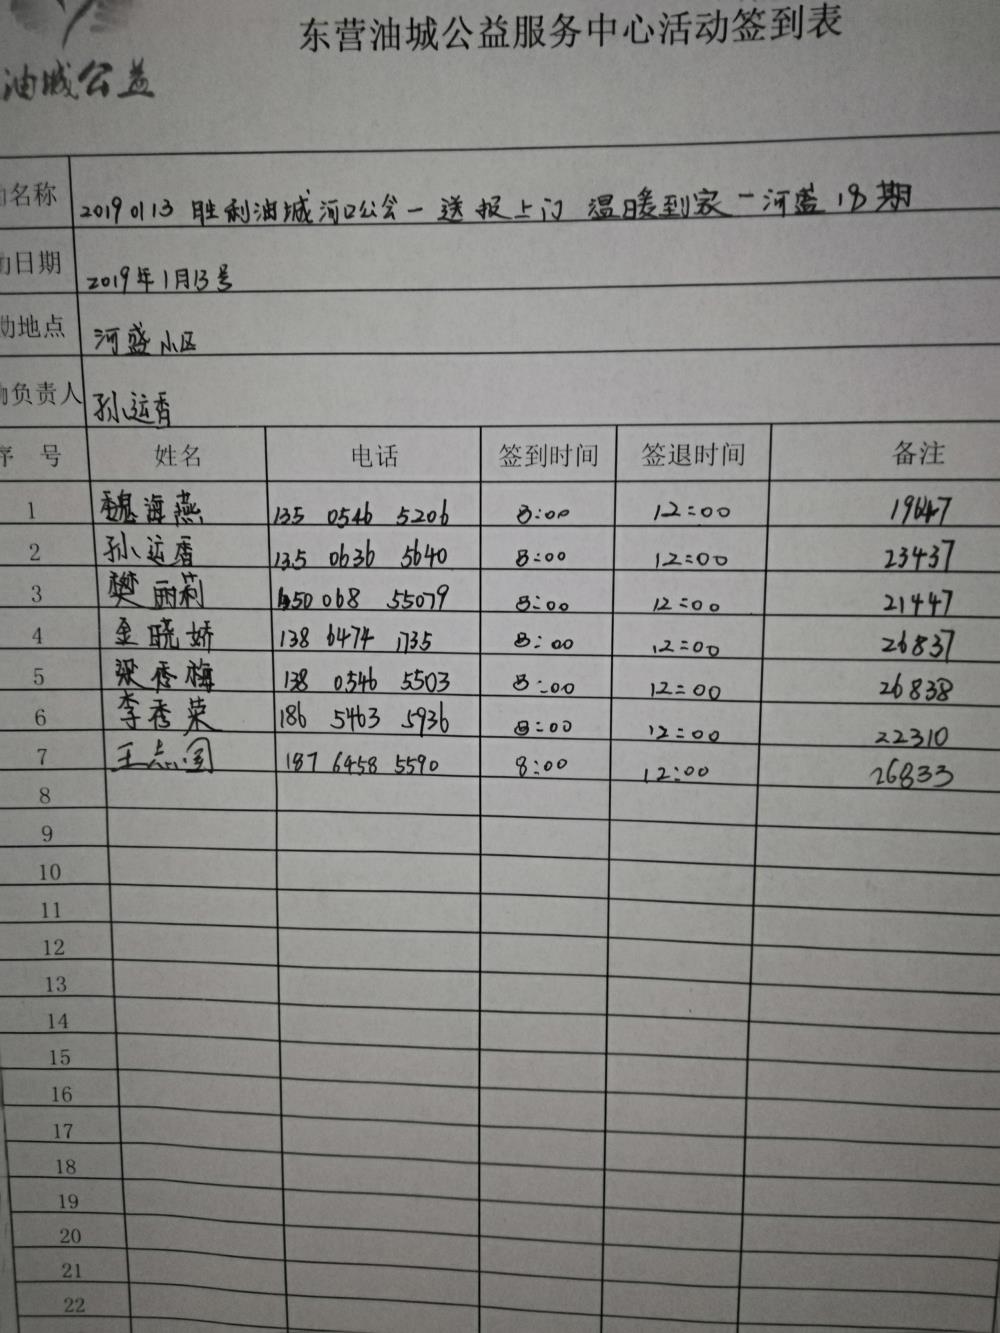 东营油城公益服务中心活动签到表
油城公益
名称 20190113 胜利油城河口公会一送报上门 温暖到家一河盛18期
日期 2019年1月13号
地点 河盛小区
负责人 孙运香
序 号 姓名 电话 签到时间 签退时间 备注
1 魏海燕 135 0546 5206 8:00 12:00 19647
2 孙运香 135 0636 5640 8:00 12:00 23437
3 樊丽莉 150 068 55079 8:00 12:00 21447
4 金晓娇 138 6474 1735 8:00 12:00 26837
5 梁秀梅 138 0546 5503 8:00 12:00 26838
6 李秀荣 186 5463 5936 8:00 12:00 22310
7 王志国 187 6458 5590 8:00 12:00 26833
8
9
10
11
12
13
14
15
16
17
18
19
20
21
22